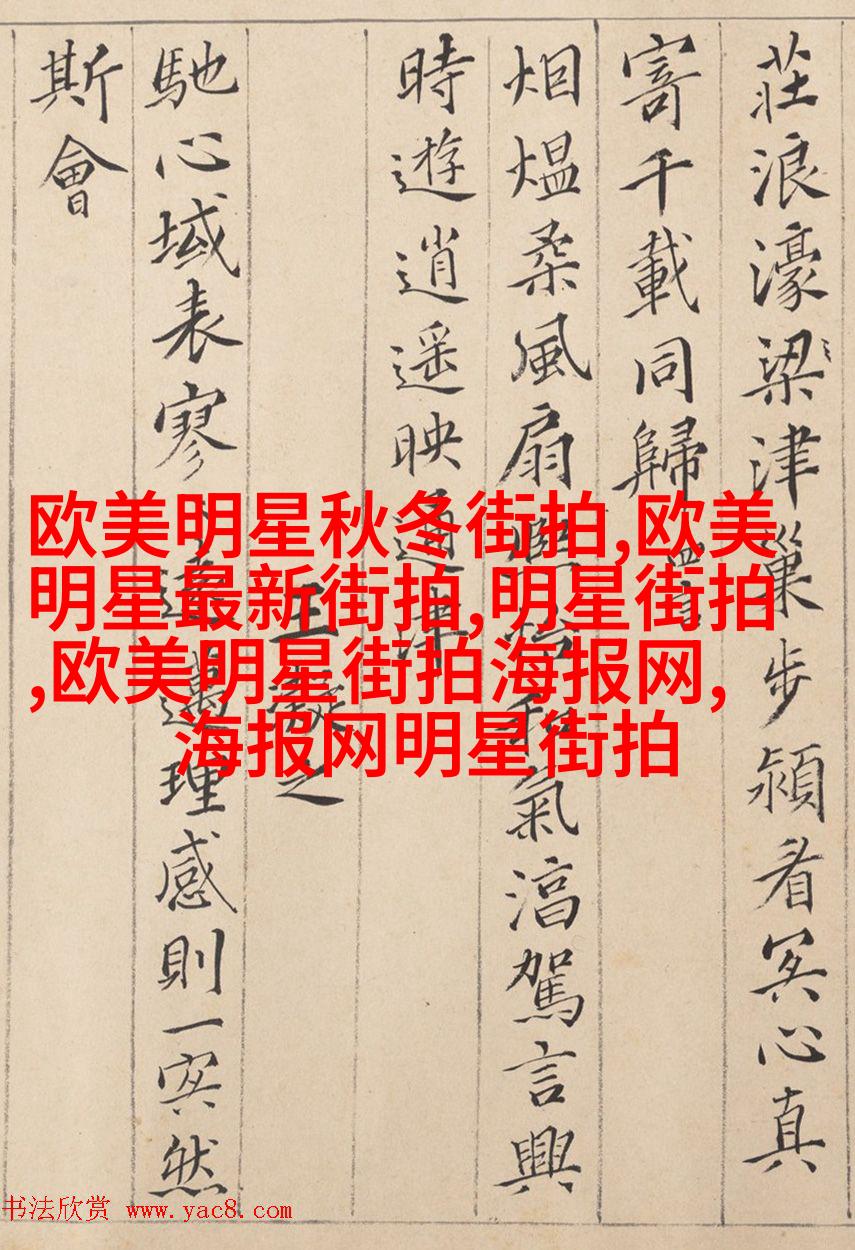 莊浪濠梁津巢步潁眉冥心真
寄千載同歸 四言
烟煴柔風扇熙怡和氣淳駕言興
時遊逍遥映通津
王凝之
馳心域表寥々遠邁理感則一冥然
斯會
欧美明星秋冬街拍,欧美
明星最新街拍,明星街拍
,欧美明星街拍海报网,
海报网明星街拍
书法欣赏 www.yac8.com